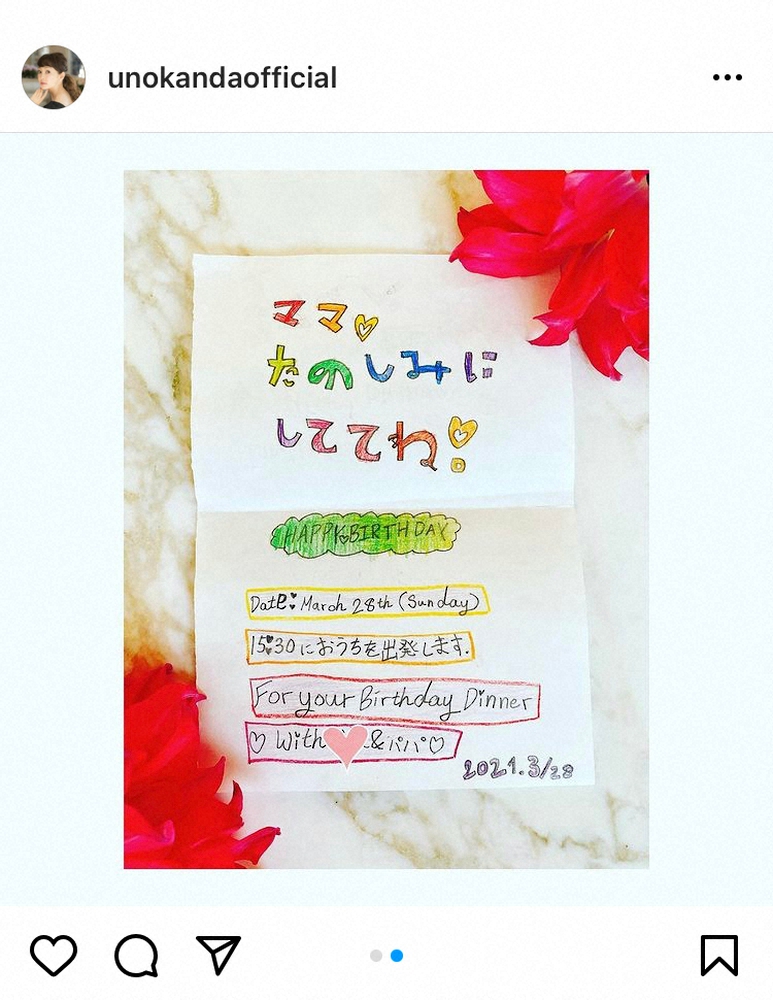 unokandaofficial
ママ♡
たのしみに
しててね!
HAPPY BIRTHDAY
Date: March 28th (Sunday)
15:30におうちを出発します.
For your Birthday Dinner
♡ With &パパ♡
2021.3/28